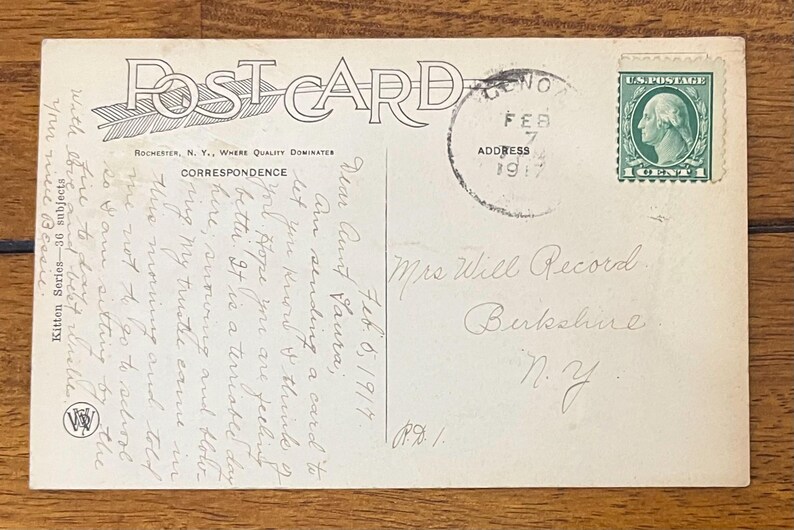 POST CARD
ROCHESTER, N. Y., WHERE QUALITY DOMINATES
CORRESPONDENCE
ADDRESS
GENOA
FEB
7
1917
U.S. POSTAGE
1 CENT 1
Feb. 6, 1917.
Dear Aunt Laura,
Am sending a card to
let you know I think of
you. Hope you are feeling
better. It is a terriable day
here, snowing and blow-
ing. My trustee came in
this morning and told
me not to go to school
so I am sitting by the
fire to day.
With love and best wishes
your niece Bessie.
Kitten Series—36 subjects
Mrs Will Record.
Berkshire
N. Y.
R.D. 1.